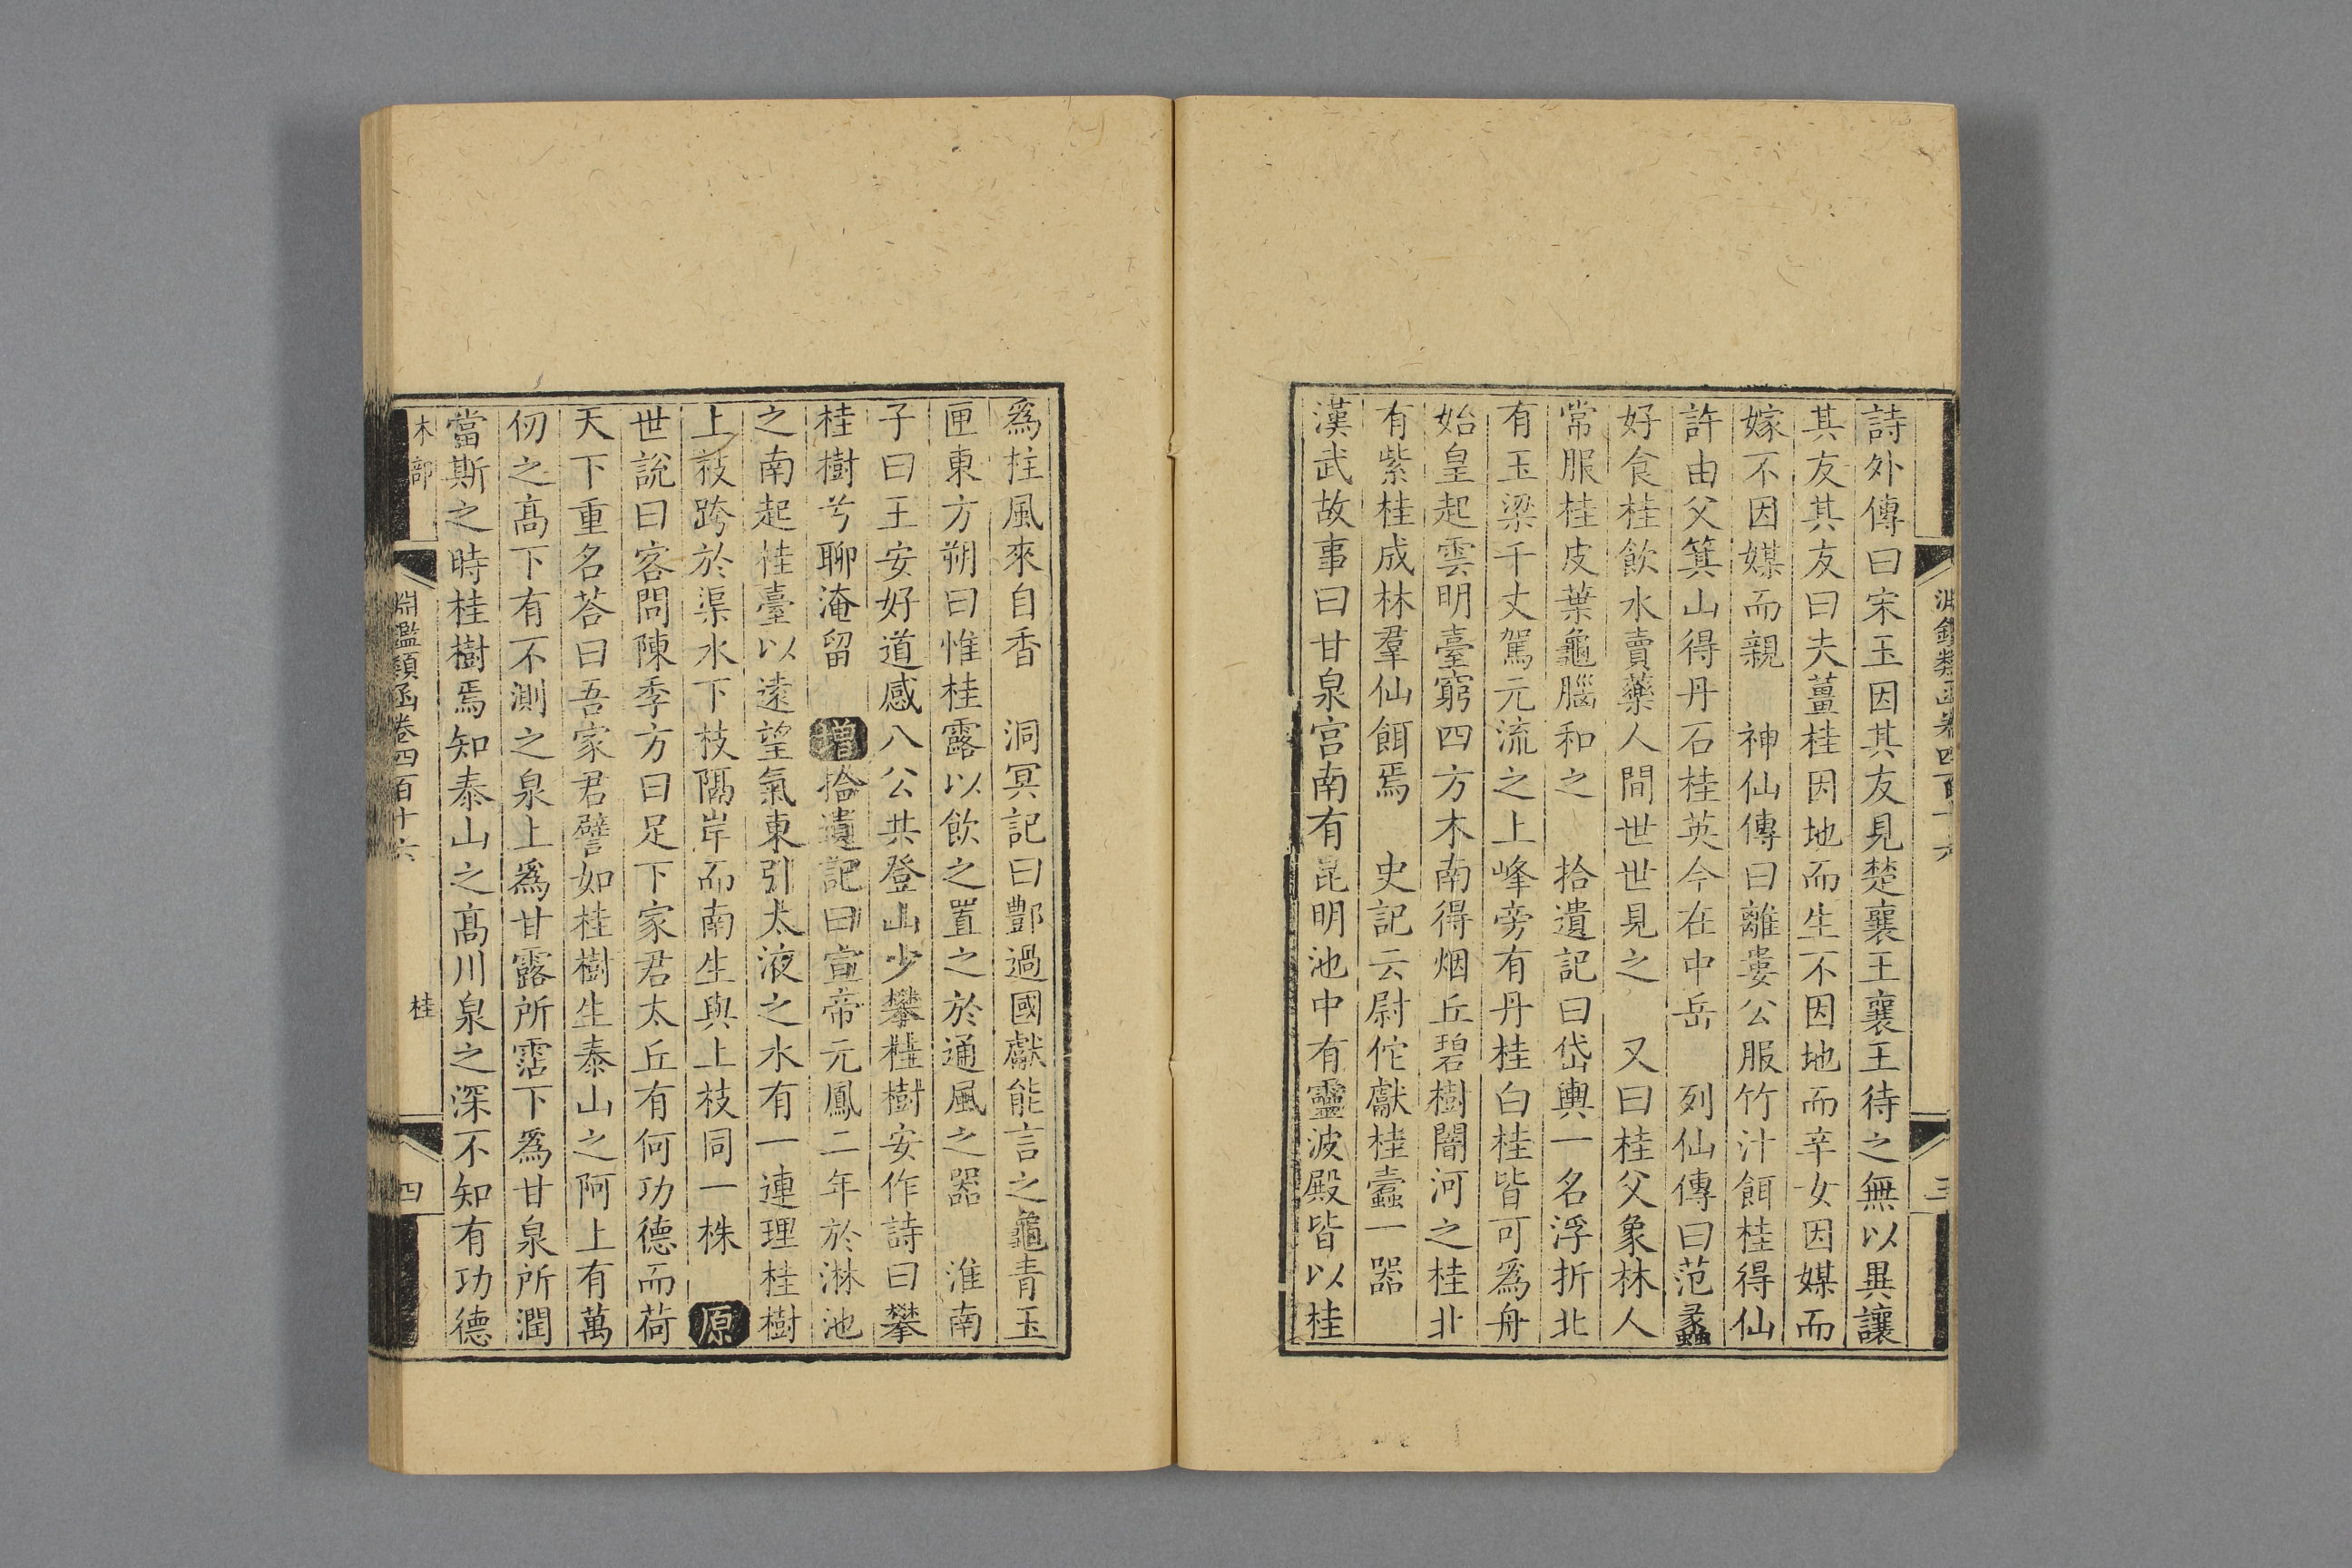 淵鑑類函卷四百十六
三
詩外傳曰宋玉因其友見楚襄王襄王待之無以異讓
其友其友曰夫薑桂因地而生不因地而辛女因媒而
嫁不因媒而親　神仙傳曰離婁公服竹汁餌桂得仙
許由父箕山得丹石桂英今在中岳　列仙傳曰范蠡
好食桂飲水賣藥人間世世見之　又曰桂父象林人
常服桂皮葉龜腦和之　拾遺記曰岱輿一名浮折北
有玉梁千丈駕元流之上峰旁有丹桂白桂皆可爲舟
始皇起雲明臺窮四方木南得烟丘碧樹闇河之桂北
有紫桂成林羣仙餌焉　史記云尉佗獻桂蠹一器
漢武故事曰甘泉宮南有昆明池中有靈波殿皆以桂
爲柱風來自香　洞冥記曰酆過國獻能言之龜青玉
匣東方朔曰惟桂露以飲之置之於通風之器　淮南
子曰王安好道感八公共登山少攀桂樹安作詩曰攀
桂樹兮聊淹留　增拾遺記曰宣帝元鳳二年於淋池
之南起桂臺以遠望氣東引太液之水有一連理桂樹
上枝跨於渠水下枝隔岸而南生與上枝同一株　原
世說曰客問陳季方曰足下家君太丘有何功德而荷
天下重名荅曰吾家君譬如桂樹生泰山之阿上有萬
仞之高下有不測之泉上爲甘露所霑下爲甘泉所潤
當斯之時桂樹焉知泰山之高川泉之深不知有功德
木部
淵鑑類函卷四百十六
桂
四